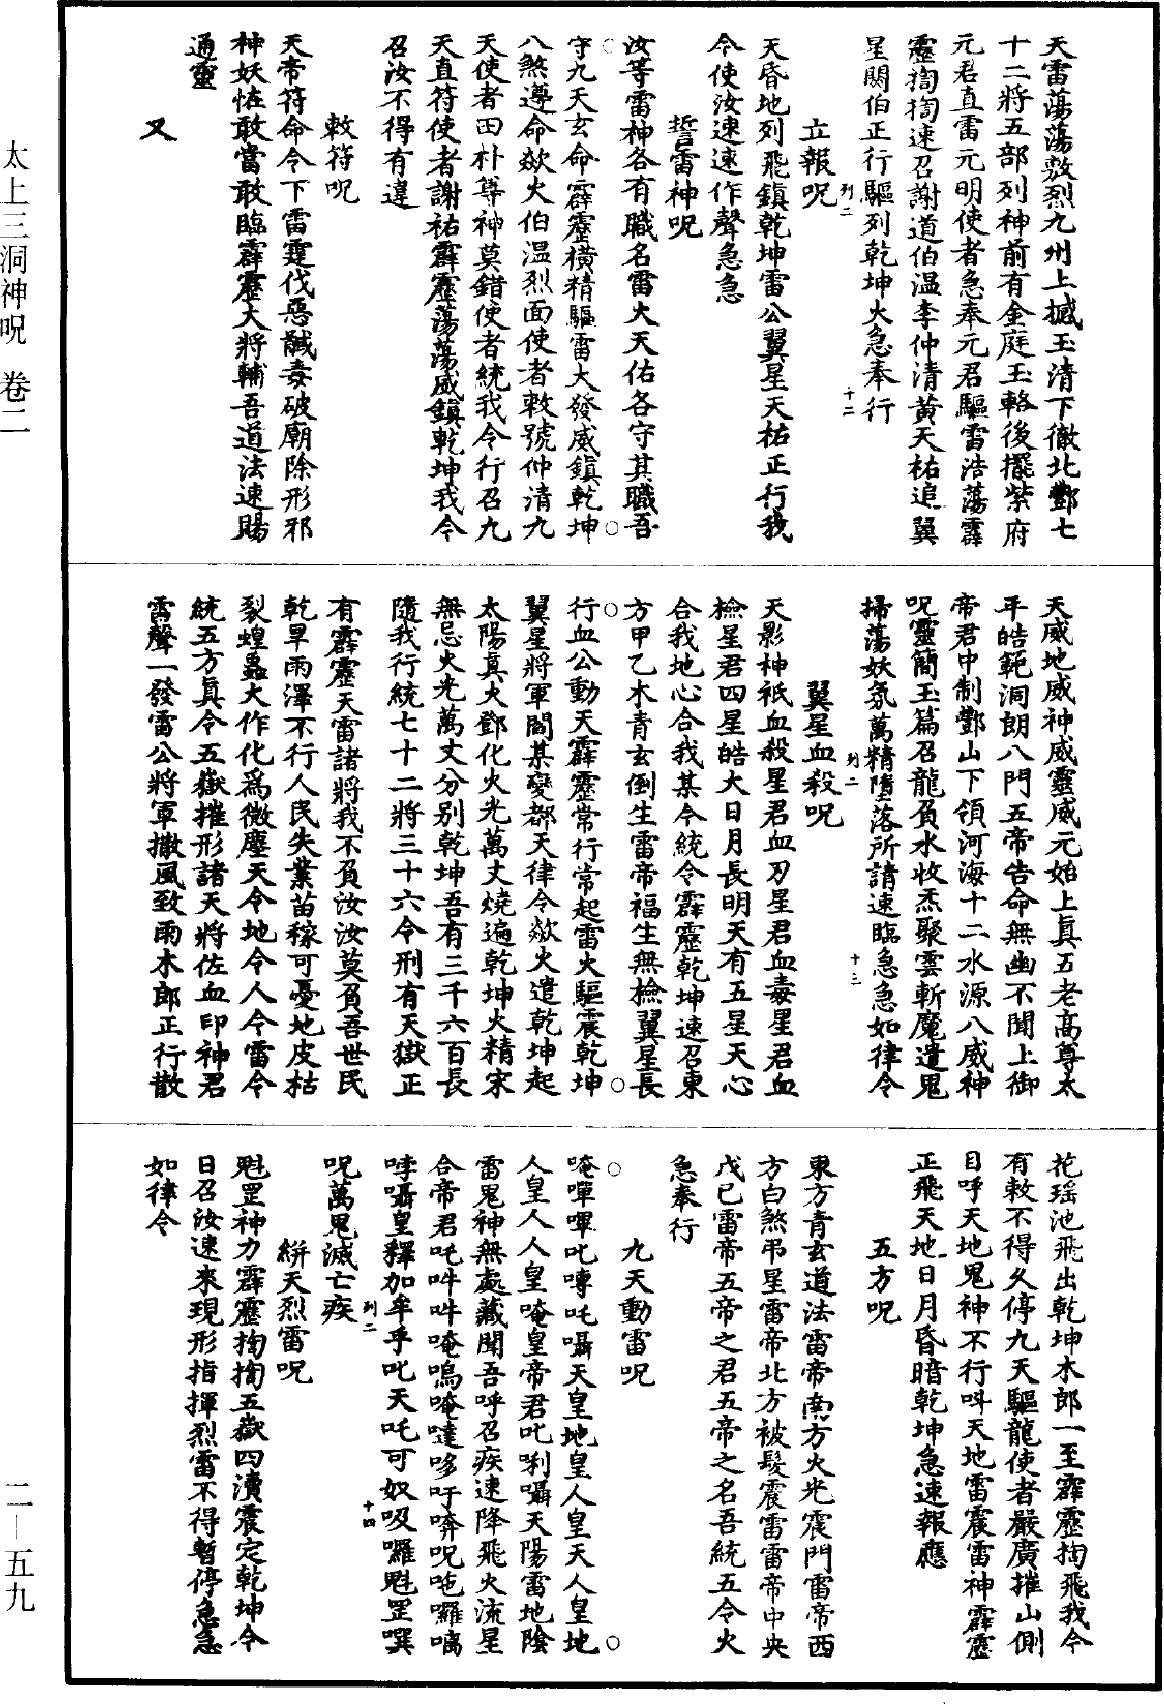 天雷蕩蕩敷烈九州上撼玉清下徹北酆七
十二將五部列神前有金庭玉輅後擺紫府
元君直雷元明使者急奉元君驅雷浩蕩霹
靂掏掏速召謝道伯温李仲清黃天祐追翼
星關伯正行驅列乾坤火急奉行
列二
十二
立報呪
天昏地列飛鎮乾坤雷公翼星天祐正行我
令使汝速速作聲急急
誓雷神呪
汝等雷神各有職名雷火天佑各守其職吾
守九天玄命霹靂橫精驅雷大發威鎮乾坤
八煞遵命歘火伯温烈面使者敕號仲清九
天使者田朴尊神莫錯使者統我令行召九
天直符使者謝祐霹靂蕩蕩威鎮乾坤我令
召汝不得有違
敕符呪
天帝符命令下雷霆伐惡馘毒破廟除形邪
神妖怪敢當敢臨霹靂大將輔吾道法速賜
通靈
又
天威地威神威靈威元始上真五老高尊太
平皓範洞朗八門五帝告命無幽不聞上御
帝君中制酆山下領河海十二水源八威神
呪靈簡玉篇召龍負水收炁聚雲斬魔遣鬼
掃蕩妖氛萬精墮落所請速臨急急如律令
列二
十三
翼星血殺呪
天影神祇血殺星君血刃星君血毒星君血
檢星君四星皓大日月長明天有五星天心
合我地心合我某令統令霹靂乾坤速召東
方甲乙木青玄倒生雷帝福生無檢翼星長
行血公動天霹靂常行常起雷火驅震乾坤
翼星將軍閻某變都天律令歘火遣乾坤起
太陽真火鄧化火光萬丈燒遍乾坤火精宋
無忌火光萬丈分別乾坤吾有三千六百長
隨我行統七十二將三十六令刑有天獄正
有霹靂天雷諸將我不負汝汝莫負吾世民
乾旱雨澤不行人民失業苗稼可憂地皮枯
裂蝗蟲大作化爲微塵天令地令人令雷令
統五方真令五嶽摧形諸天將佐血印神君
雷聲一發雷公將軍撒風致雨木郎正行散
花瑶池飛出乾坤木郎一至霹靂掏飛我令
有敕不得久停九天驅龍使者嚴廣摧山倒
目呼天地鬼神不行呌天地雷震雷神霹靂
正飛天地日月昏暗乾坤急速報應
五方呪
東方青玄道法雷帝南方火光震門雷帝西
方白煞弔星雷帝北方被髮震雷雷帝中央
戊己雷帝五帝之君五帝之名吾統五令火
急奉行
九天動雷呪
唵㖶㖶叱嚩吒囁天皇地皇人皇天人皇地
人皇人人皇唵皇帝君叱唎囁天陽雷地陰
雷鬼神無處藏聞吾呼召疾速降飛火流星
合帝君吒吽吽唵嗚唵噠哆吁㖹呪吔囉嗃
哱囁皇釋加牟乎叱天吒可奴吸囉魁罡噀
呪萬鬼滅亡疾
列二
十四
絣天烈雷呪
魁罡神力霹靂掏掏五嶽四瀆震定乾坤令
日召汝速來現形指揮烈雷不得暫停急急
如律令
太上三洞神呪　卷二
二—五九